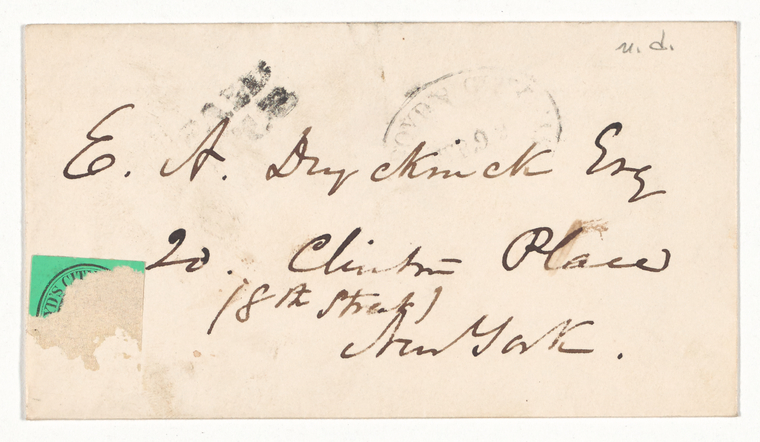 n. d.
E. A. Duyckinck Esq
20. Clinton Place
(8th Street)
New York.